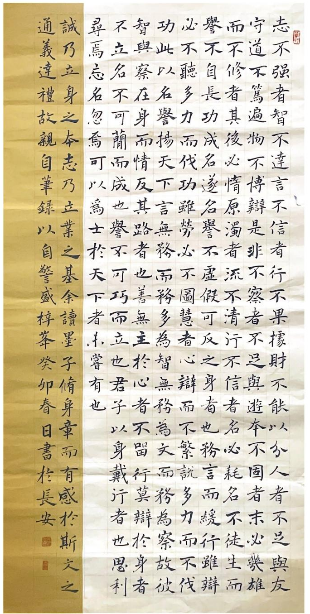 志不强者智不達言不信者行不果據財不能以分人者不足與友
守道不篤遍物不博辯是非不察者不足與遊本不固者末必幾雄
而不修者其後必惰原濁者流不清行不信者名必耗名不徒生而
譽不自長功成名遂名譽不虛假可反之身者也務言而緩行雖辯
必不聽多力而伐功雖勞必不圖慧者心辯而不繁說多力而不伐
功此以名譽揚天下言無務而務多為智無務為文而務為察故彼
智與察在身而情反其路者也善無主於心者不留行莫辯於身者
不立名不可簡而成也譽不可巧而立也君子以身戴行者也思利
尋焉忘名忽焉可以為士於天下者未嘗有也
誠乃立身之本志乃立業之基余讀墨子脩身章而有感於斯文之
通義達禮故親自筆錄以自警盛梓峯癸卯春日書於長安